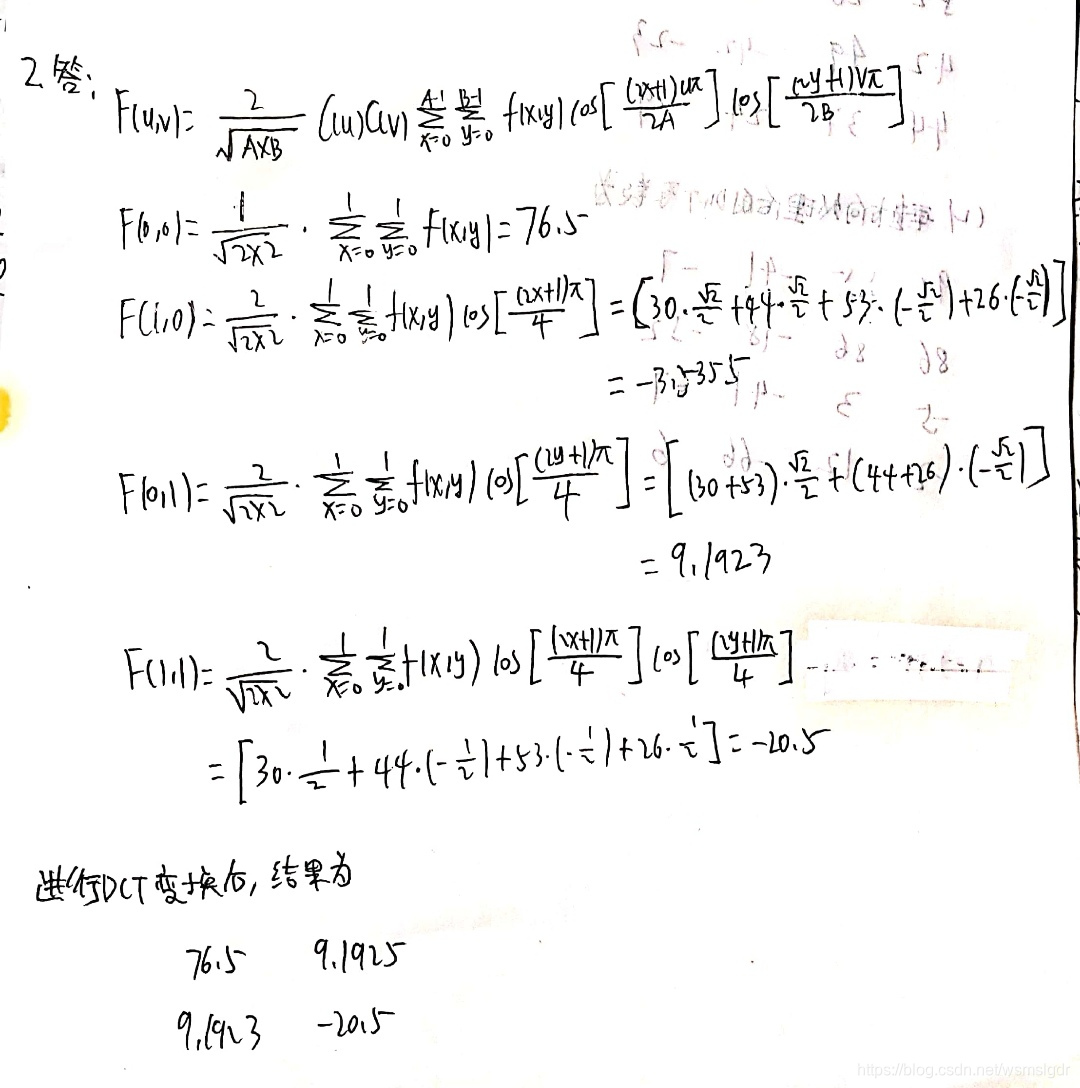 2.答:
F(u,v)= 2/√A×B C(u)C(v) Σ_{x=0}^{A-1} Σ_{y=0}^{B-1} f(x,y) cos[(2x+1)uπ/2A] cos[(2y+1)vπ/2B]
F(0,0)= 1/√2×2 · Σ_{x=0}^{1} Σ_{y=0}^{1} f(x,y)=76.5
F(1,0)= 2/√2×2 · Σ_{x=0}^{1} Σ_{y=0}^{1} f(x,y) cos[(2x+1)π/4] = [30·√2/2+44·√2/2+53·(-√2/2)+26·(-√2/2)]
= -3.5355
F(0,1)= 2/√2×2 · Σ_{x=0}^{1} Σ_{y=0}^{1} f(x,y) cos[(2y+1)π/4] = [(30+53)·√2/2+(44+26)·(-√2/2)]
= 9.1923
F(1,1)= 2/√2×2 · Σ_{x=0}^{1} Σ_{y=0}^{1} f(x,y) cos[(2x+1)π/4] cos[(2y+1)π/4]
= [30·1/2+44·(-1/2)+53·(-1/2)+26·1/2]=-20.5
进行DCT变换后,结果为
76.5 9.1925
9.1923 -20.5
https://blog.csdn.net/wsmslgdr